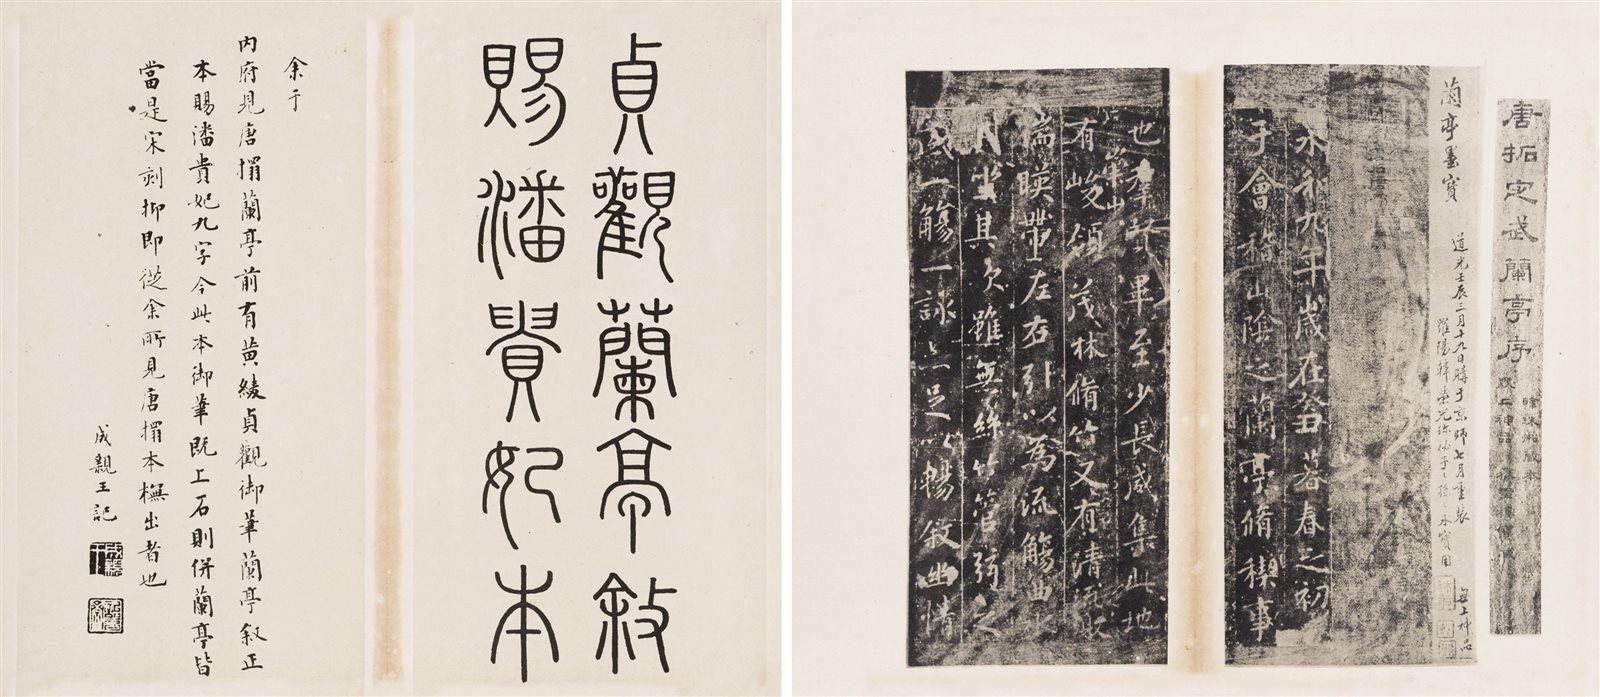 唐拓定武蘭亭序
蘭亭墨寶
道光壬辰三月十九日購于京師七月重裝
無上神品
永和九年歲在癸丑暮春之初
于會稽山陰之蘭亭脩禊事
也羣賢畢至少長咸集此地
崇山
有峻領茂林脩竹又有清流激
湍暎帶左右引以為流觴曲
列坐其次雖無絲竹管弦之
盛一觴一詠亦足以暢敘幽情
貞觀蘭亭敘
賜潘貴妃本
余于
内府見唐搨蘭亭前有黄綾貞觀御筆蘭亭叙正
本賜潘貴妃九字今此本御筆既上石則併蘭亭皆
當是宋刻抑即從余所見唐搨本橅出者也
成親王記